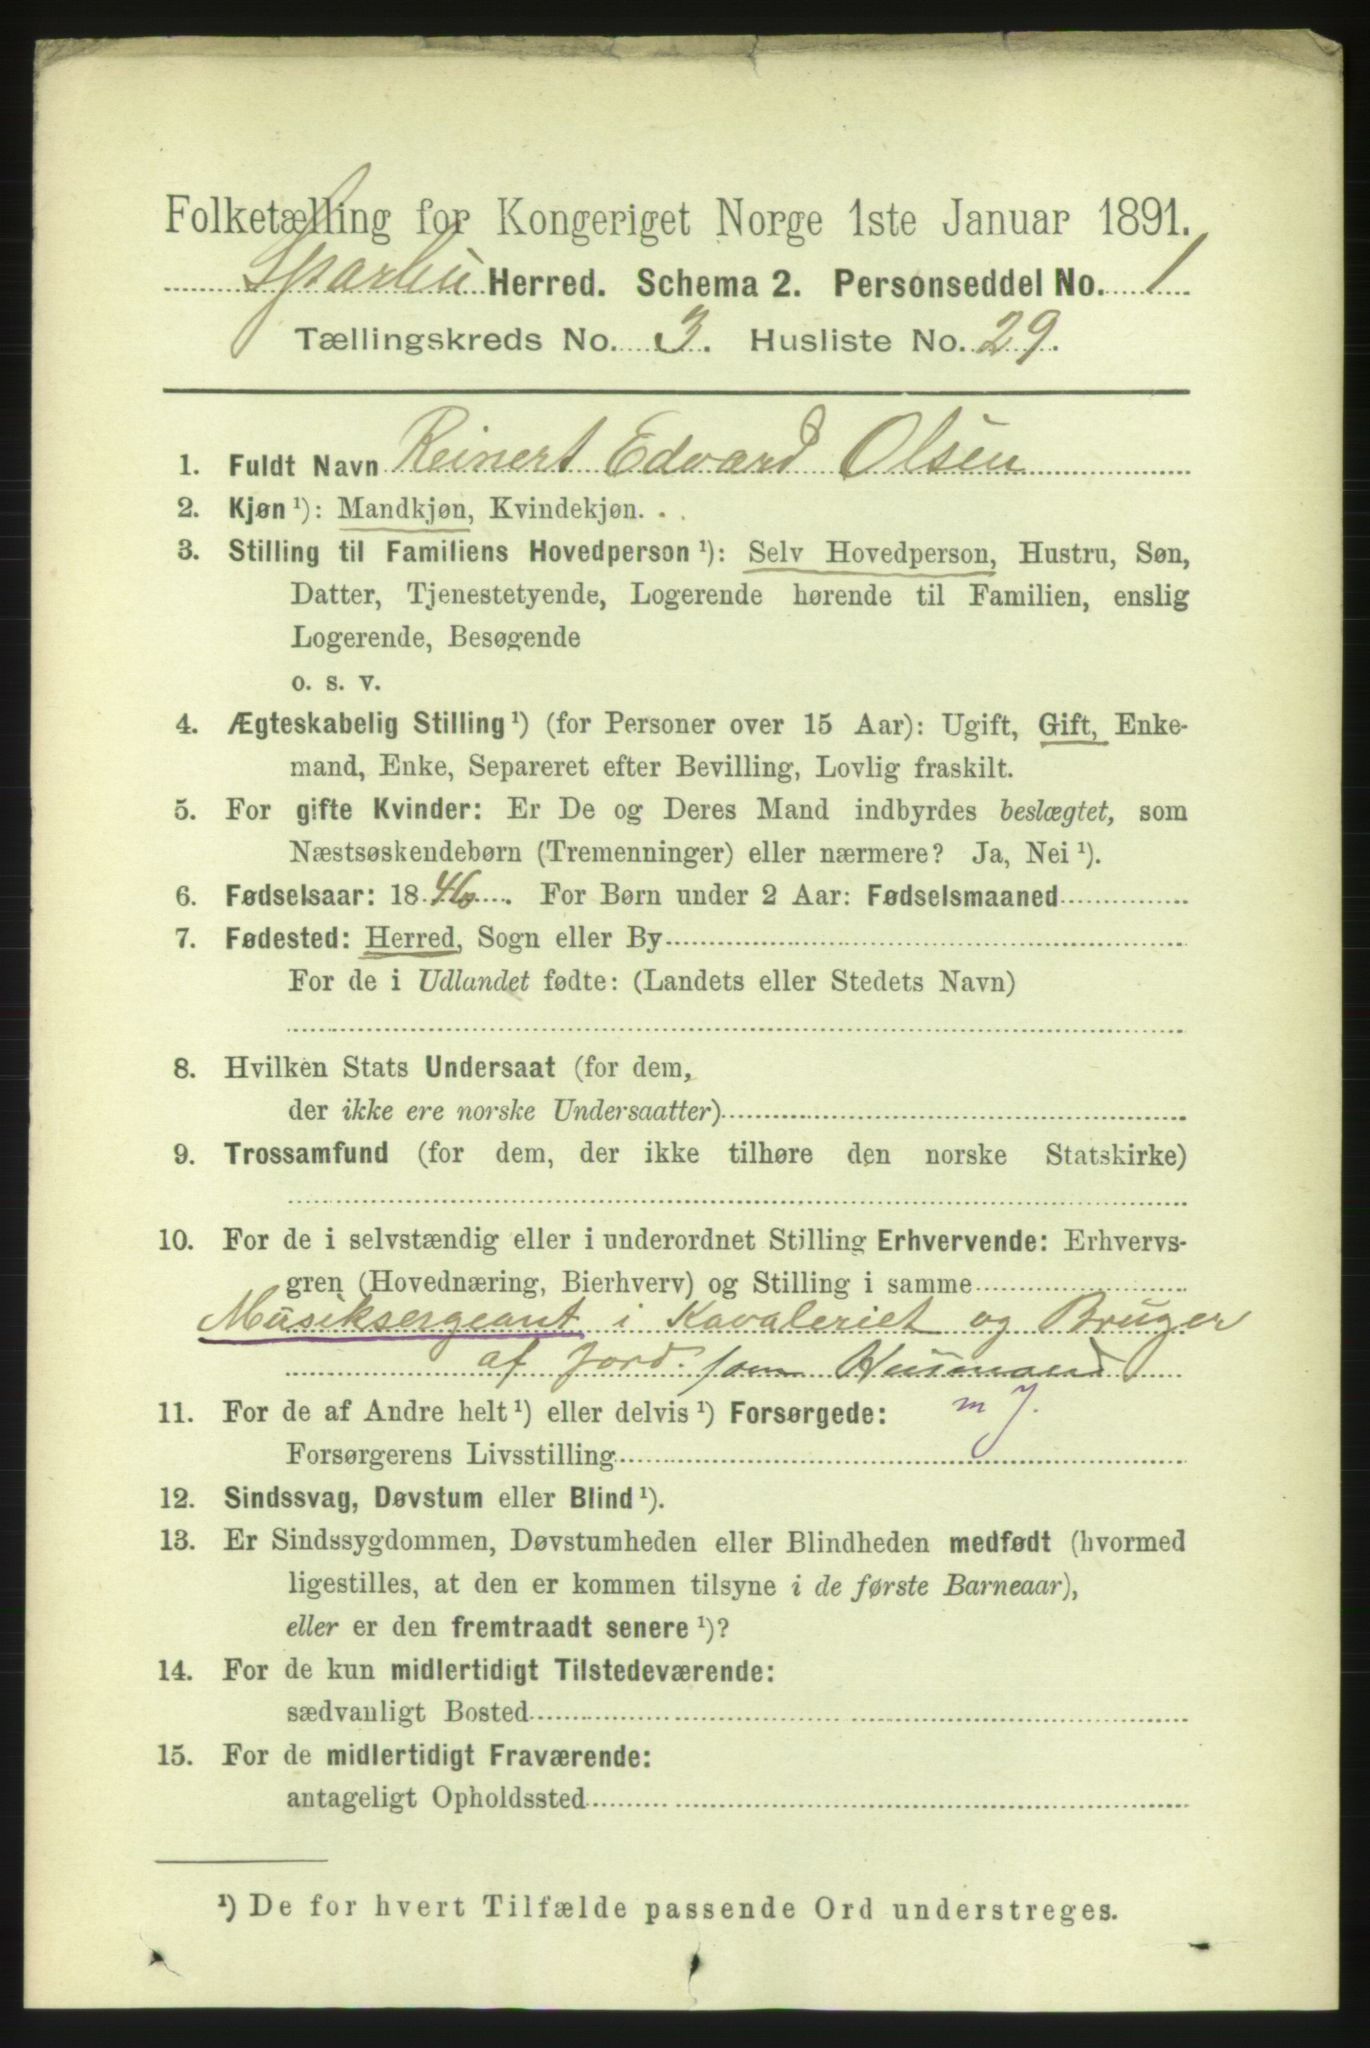 Folketælling for Kongeriget Norge 1ste Januar 1891.
Sparbu Herred. Schema 2. Personseddel No. 1
Tællingskreds No. 3. Husliste No. 29.
1. Fuldt Navn Reinert Edvard Olsen
2. Kjøn ¹): Mandkjøn, Kvindekjøn.
3. Stilling til Familiens Hovedperson ¹): Selv Hovedperson, Hustru, Søn,
Datter, Tjenestetyende, Logerende hørende til Familien, enslig
Logerende, Besøgende
o. s. v.
4. Ægteskabelig Stilling ¹) (for Personer over 15 Aar): Ugift, Gift, Enke-
mand, Enke, Separeret efter Bevilling, Lovlig fraskilt.
5. For gifte Kvinder: Er De og Deres Mand indbyrdes beslægtet, som
Næstsøskendebørn (Tremenninger) eller nærmere? Ja, Nei ¹).
6. Fødselsaar: 1846. For Børn under 2 Aar: Fødselsmaaned
7. Fødested: Herred, Sogn eller By
For de i Udlandet fødte: (Landets eller Stedets Navn)
8. Hvilken Stats Undersaat (for dem,
der ikke ere norske Undersaatter)
9. Trossamfund (for dem, der ikke tilhøre den norske Statskirke)
10. For de i selvstændig eller i underordnet Stilling Erhvervende: Erhvervs-
gren (Hovednæring, Bierhverv) og Stilling i samme
Musiksergeant i Kavaleriet og Bruger
af Jord som Husmand
m J.
11. For de af Andre helt ¹) eller delvis ¹) Forsørgede:
Forsørgerens Livsstilling
12. Sindssvag, Døvstum eller Blind ¹).
13. Er Sindssygdommen, Døvstumheden eller Blindheden medfødt (hvormed
ligestilles, at den er kommen tilsyne i de første Barneaar),
eller er den fremtraadt senere ¹)?
14. For de kun midlertidigt Tilstedeværende:
sædvanligt Bosted
15. For de midlertidigt Fraværende:
antageligt Opholdssted
¹) De for hvert Tilfælde passende Ord understreges.